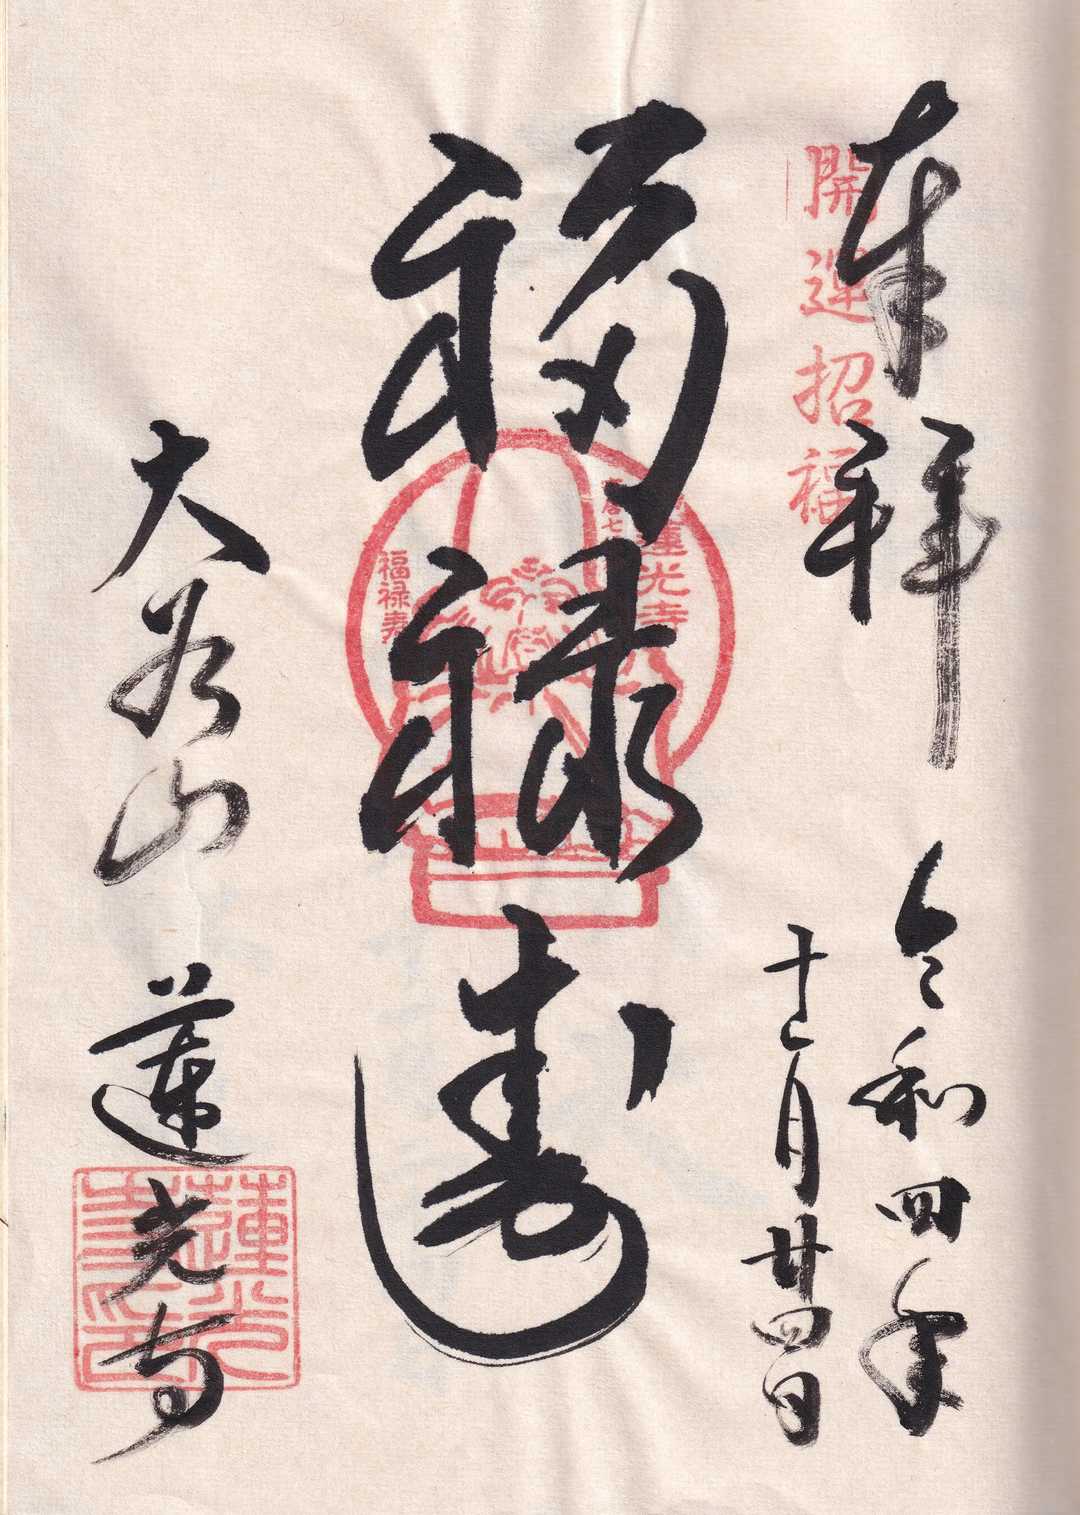 奉拝
開運招福
令和四年
十一月廿四日
福禄寿
蓮光寺
福禄寿
大谷山 蓮光寺